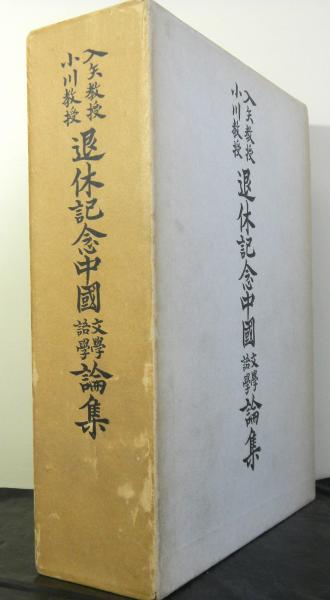 入矢教授
小川教授
退休記念中國
文學
語學
論集
入矢教授
小川教授
退休記念中國
文學
語學
論集